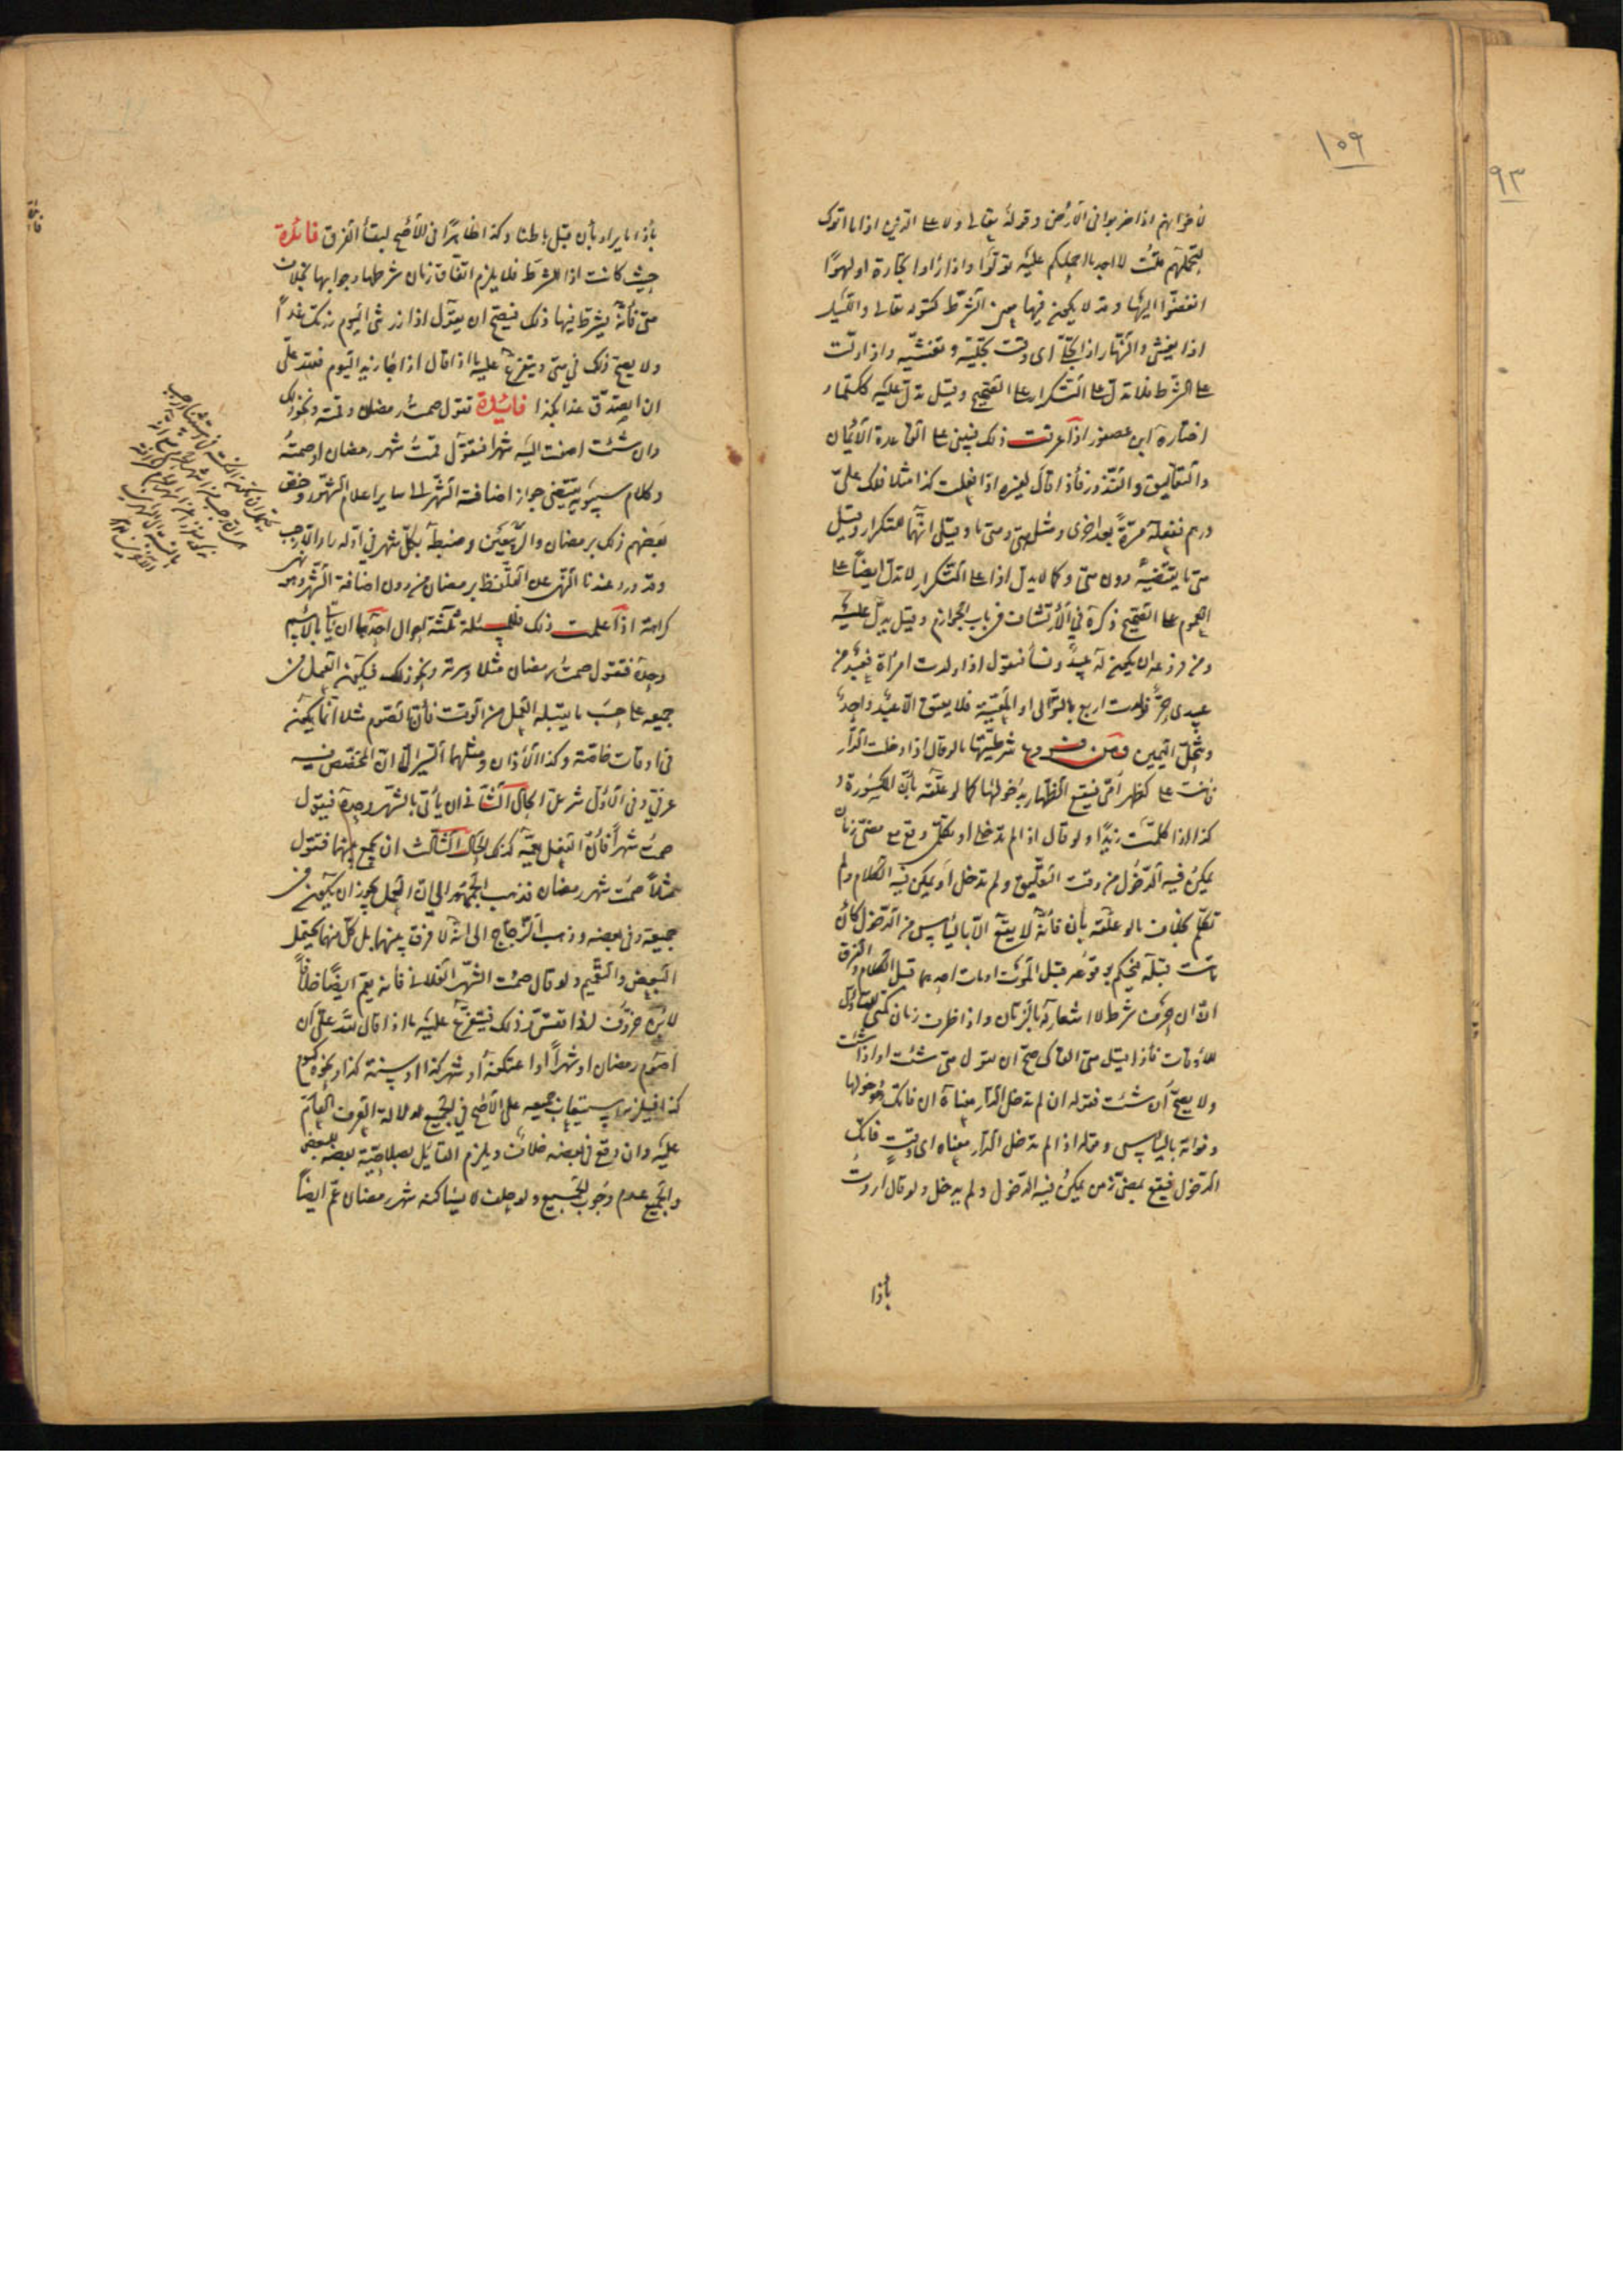 ١٥٩
٩٣
لأخوانهم اذا ضربوا فى الأرض وقوله تعالى ولا على الذين اذا ما اتوك
لتحملهم قلت لا اجد ما احملكم عليه تولوا واذا رأوا تجارة او لهوا
انفضوا اليها وقد لا يكون فيها معنى الشرط كقوله تعالى والليل
اذا يغشى والنهار اذا تجلى اى وقت تجليه وتغشيه واذا دلت
على الشرط فلا تدل على التكرار على الصحيح وقيل تدل عليه ككلما و
اختاره ابن عصفور اذا عرفت ذلك فينبنى على القاعدة الأيمان
والتعاليق والنذور فأذا قال لغيره اذا فعلت كذا مثلا فلك على
درهم ففعله مرة بعد اخرى ومثل متى ومتى ما وقيل انهما للتكرار وقيل
متى ما يقتضيه دون متى وكما لا يدل اذا على التكرار لا تدل ايضا على
العموم على الصحيح ذكره فى الأرتشاف فى باب الجوازم وقيل يدل عليه
ومن فروعه ان يكون له عبيد ونسأ فيقول اذا ولدت امرأة فعبد من
عبيدى حر فولدت اربع بالتوالى او المعية فلا يعتق الا عبد واحد
وتنحل اليمين ومن فروع شرطيتها ما لو قال اذا دخلت الدار
فأنت على كظهر امى فيقع الظهار بدخولها كما لو علقه بأن المكسورة و
كذا اذا كلمت زيدا ولو قال اذا لم تدخلى او تكلمى وقع مع مضى زمان
يمكن فيه الدخول من وقت التعليق ولم تدخل او يمكن فيه الكلام ولم
تكلم بخلاف ما لو علقه بأن فأنه لا يقع الا باليأس من الدخول كأن
ماتت قبله فيحكم بوقوعه قبل الموت او مات احدهما قبل الكلام والفرق
ان ان حرف شرط لا اشعار له بالزمان واذا ظرف زمان كمتى للتناول
للأوقات فأذا قيل متى القاك صح ان تقول متى شئت او اذا شئت
ولا يصح ان شئت فقوله ان لم تدخل الدار معناه ان فاتك دخولها
وفواته باليأس وقوله اذا لم تدخل الدار معناه اى وقت فاتك
الدخول فيقع بمضى زمن يمكن فيه الدخول ولم يدخل ولو قال اردت
بأذا
بأذا ما يراد بأن قبل باطنا وكذا ظاهرا فى الأصح لبقأ الفرق فائدة
حيث كانت اذا للشرط فلا يلزم اتفاق زمان شرطها وجوابها بخلاف
متى فأنه يشترط فيها ذلك فيصح ان يقول اذا زرتنى اليوم زرتك غدا
ولا يصح ذلك فى متى ويتفرع عليه ما اذا قال اذا جا زيد اليوم فعبد على
ان اتصدق غدا بكذا فائدة تقول صمت رمضان وقمته ونحو ذلك
وان شئت اضفت اليه شهرا فتقول قمت شهر رمضان او صمته
وكلام سيبويه يقتضى جواز اضافة الشهر الى ساير اعلام الشهور وخص
بعضهم ذلك برمضان والربيعين وضبطه بكل شهر فى اوله را الا رجب
وقد ورد عندنا النهى عن التلفظ برمضان من دون اضافة الشهر وهو نهى
كراهة اذا علمت ذلك فللمسئلة ثلثة احوال احدها ان يأتى بالاسم
وحده فتقول صمت رمضان مثلا وسرته ونحو ذلك فيكون العمل فى
جميعه على حسب ما يقبله العمل من الوقت فأن الصوم مثلا انما يكون
فى اوقات خاصة وكذا الأذان ومثلهما السير الا ان المختص فيه
عرفى وفى الأول شرعى الحال الثانى ان يأتى بالشهر وحده فيقول
صمت شهرا فأن الفعل يعمه كذلك الحال الثالث ان يجمع بينهما فتقول
مثلا صمت شهر رمضان فذهب الجمهور الى ان العمل يجوز ان يكون فى
جميعه وفى بعضه وذهب الزجاج الى انه لا فرق بينهما بل كل منهما يحتمل
التبعيض والتعميم ولو قال صمت الشهر الفلانى فأنه يعم ايضا خلافا
لابن خروف اذا تقرر ذلك فيتفرع عليه ما اذا قال لله على ان
اصوم رمضان او شهرا او اعتكفه او شهر كذا او سنة كذا ونحوه كيوم
كذا فيلزم استيعاب جميعه على الأصح فى الجميع لدلالة العرف العام
عليه وان وقع فى بعضه خلاف ويلزم القائل بصلاحيته بعضه للبعض
والجميع عدم وجوب الجميع ولو حلف لا يساكنه شهر رمضان عم ايضا